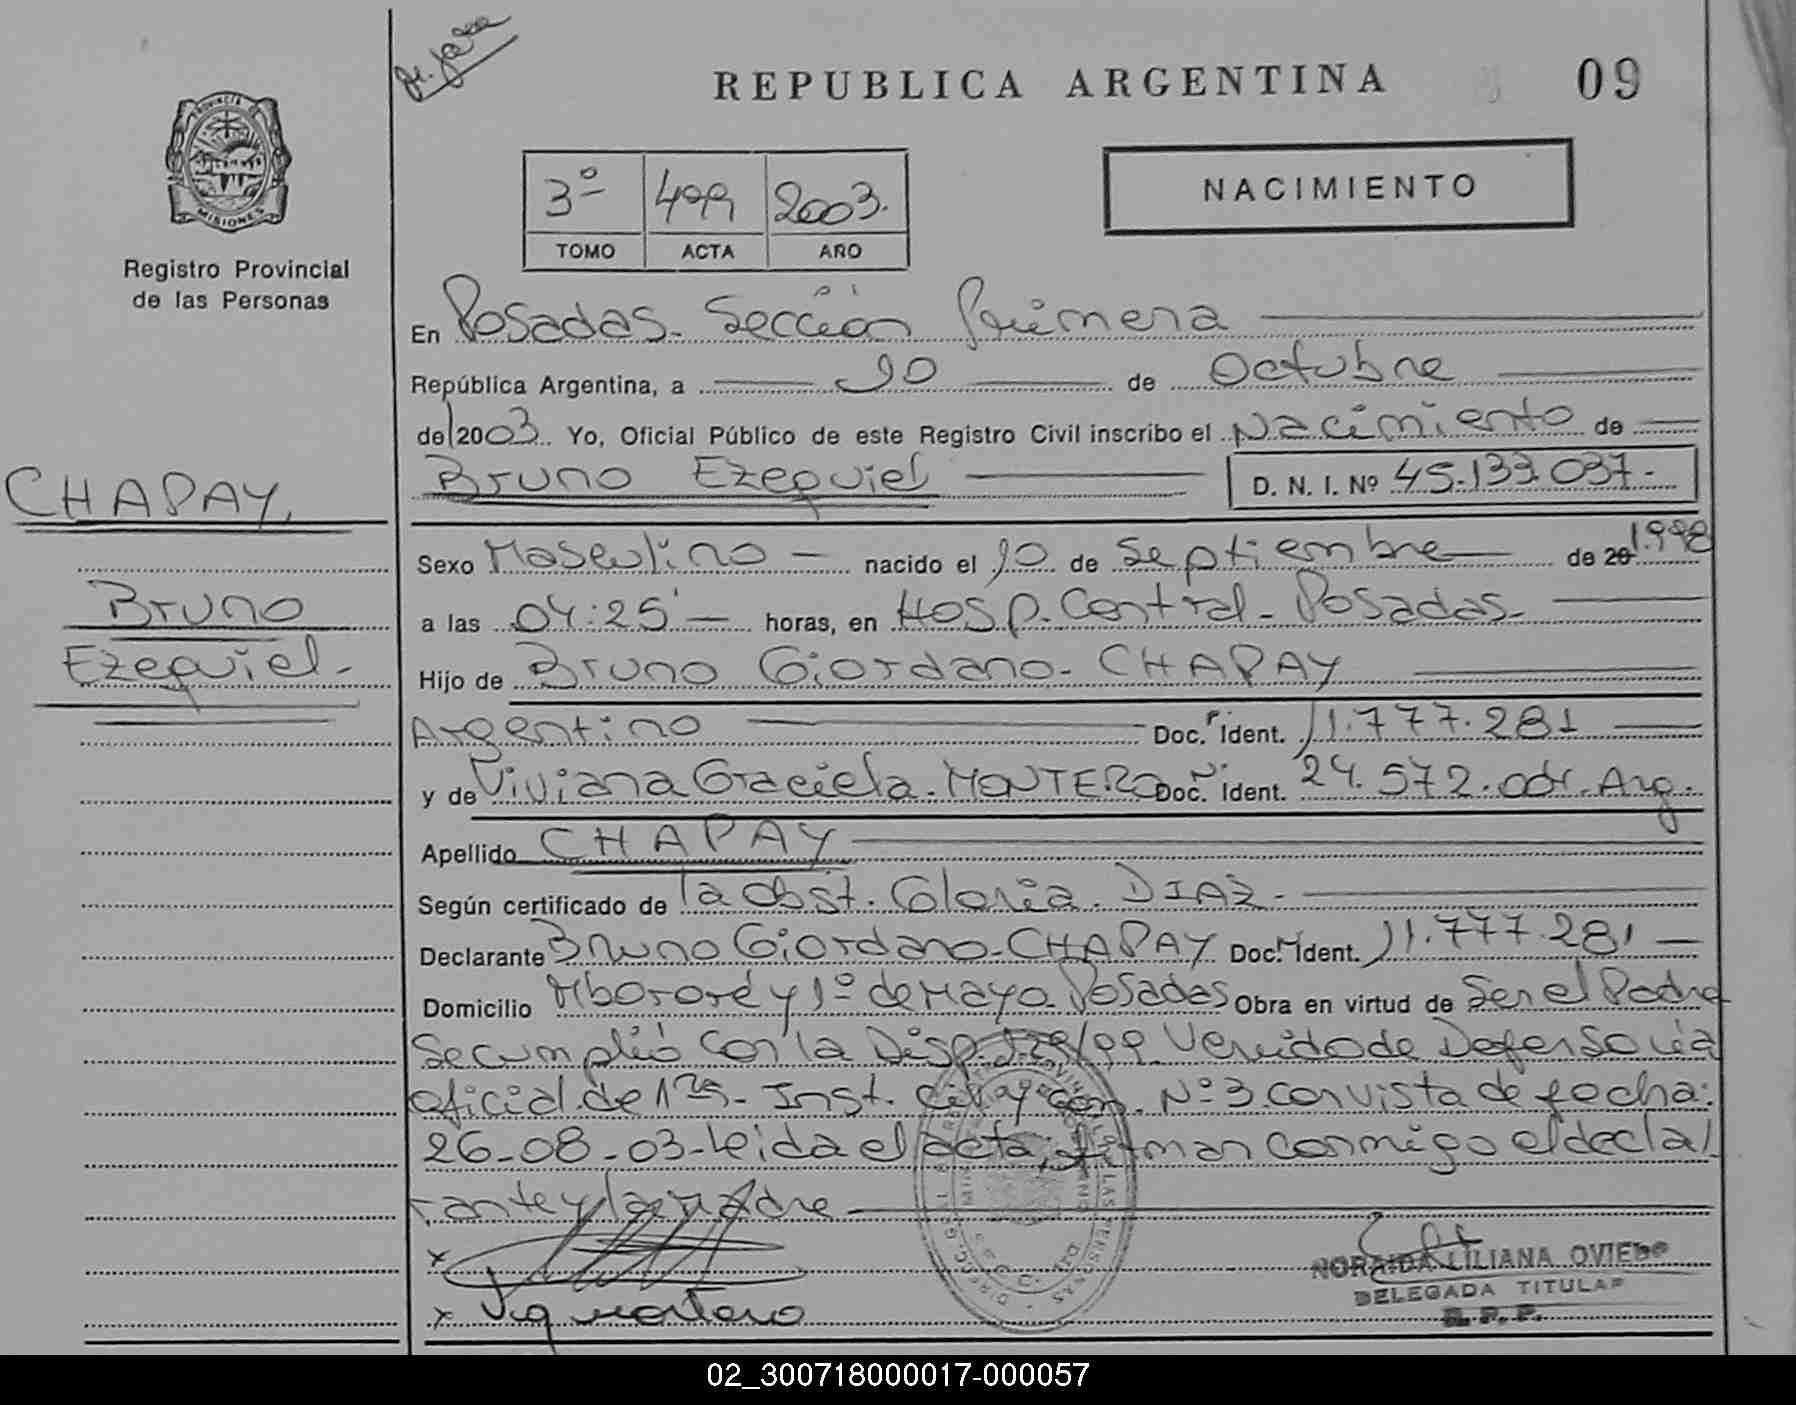 REPUBLICA ARGENTINA
09
PROVINCIA DE
MISIONES
Registro Provincial
de las Personas
3º 499 2003.
TOMO ACTA AÑO
NACIMIENTO
En Posadas. Sección Primera
República Argentina, a 10 de Octubre
de 2003. Yo, Oficial Público de este Registro Civil inscribo el Nacimiento de
Bruno Ezequiel D. N. I. Nº 45.133.037.-
CHAPAY,
Bruno
Ezequiel.-
Sexo Masculino nacido el 10 de Septiembre de 20 1.998
a las 04:25' horas, en Hosp. Central - Posadas.
Hijo de Bruno Giordano - CHAPAY
Argentino Doc. Ident. 11.777.281
y de Viviana Graciela. MONTERO Doc. Ident. 24.572. Arg.
Apellido CHAPAY
Según certificado de la Obst. Gloria. DIAZ -
Declarante Bruno Giordano - CHAPAY Doc. Ident. 11.777.281
Domicilio Mbororé y 1º de Mayo. Posadas Obra en virtud de Ser el Padre
Se cumplió con la Disp. /99 Venido de Defensoría
Oficial de 1ra. Inst. Civil y Com. Nº 3 con vista de fecha:
26-08-03- Leida el acta, firman conmigo el decla
rante y la madre
x
x Vig Montero
NORAIDA LILIANA OVIEDO
DELEGADA TITULAR
R. P. P.
02_300718000017-000057